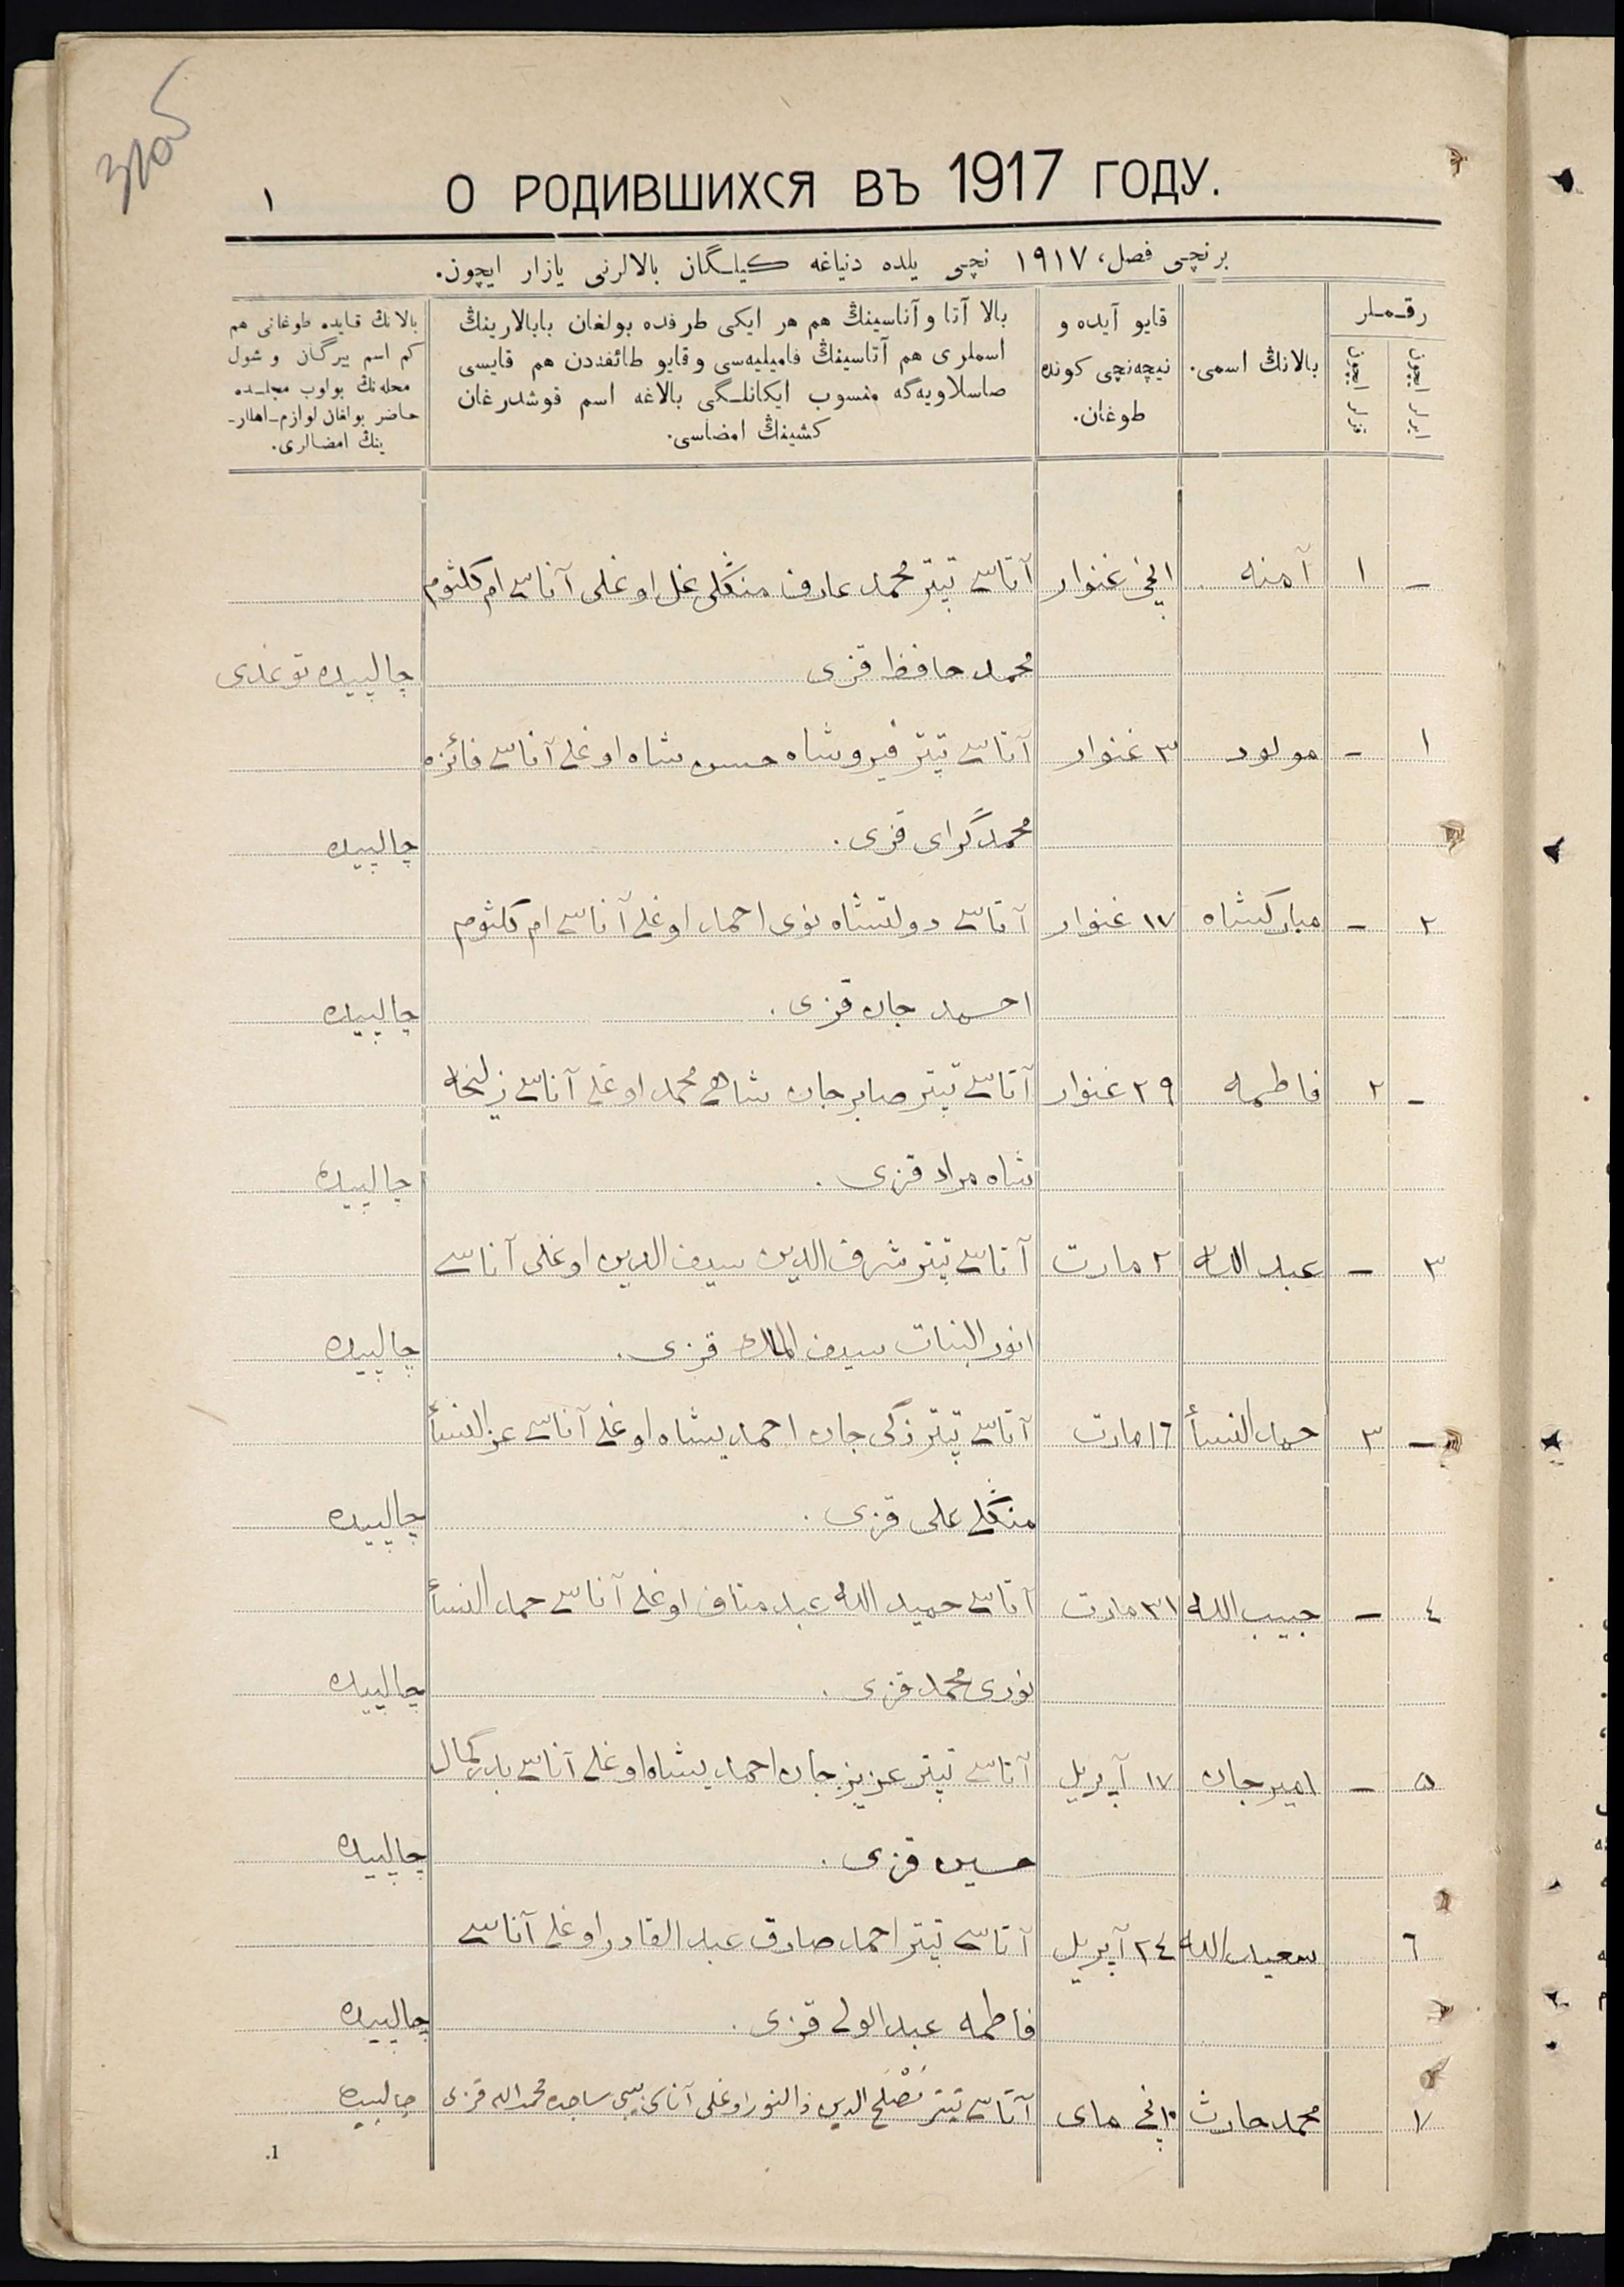 ١
О РОДИВШИХСЯ ВЪ 1917 ГОДУ.
برنچی فصل، ١٩١٧ نچی یلده دنیاغه کیلگان بالالرنی یازار ایچون.
رقملر
ایرلر ایچون
قزلر ایچون
بالانڭ اسمی.
قایو آیده و
نیچه‌نچی کونده
طوغان.
بالا آتا و آناسینڭ هم هر ایکی طرفده بولغان بابالارینڭ
اسملری هم آتاسینڭ فامیلیه‌سی و قایو طائفه‌دن هم قایسی
صاسلاویه‌گه منسوب ایکانلگی بالاغه اسم قوشدرغان
کشینڭ امضاسی.
بالانڭ قایده طوغانی هم
کم اسم بیرگان و شول
محله‌نڭ بولوب مجلسده
حاضر بولغان لوازم اهللر-
ینڭ امضالری.
– ١ آمنه ١نچی غنوار آتاسی تیتر محمد عارف منگلی غل اوغلی آناسی ام کلثوم
محمد حافظ قزی چالپیده توغدی
١ – مولود ٣ غنوار آتاسی تیتر فیروشاه حسن شاه اوغلی آناسی فائزه
محمدگرای قزی. چالپیده
٢ – مبارکشاه ١٧ غنوار آتاسی دولتشاه نوی احمد اوغلی آناسی ام کلثوم
احمد جان قزی. چالپیده
– ٢ فاطمه ٢٩ غنوار آتاسی تیتر صابرجان شاهی محمد اوغلی آناسی زلیخا
شاه مراد قزی. چالپیده
٣ – عبد الله ٢ مارت آتاسی تیتر شرف الدین سیف الدین اوغلی آناسی
انور البنات سیف الملك قزی. چالپیده
– ٣ حمد النسأ ١٦ مارت آتاسی تیتر زکی جان احمدیشاه اوغلی آناسی عز النسأ
منگلی علی قزی. چالپیده
٤ – حبیب الله ٣١ مارت آتاسی حمید الله عبد مناف اوغلی آناسی حمد النسأ
نوری محمد قزی. چالپیده
٥ – امیرجان ١٧ آپریل آتاسی تیتر عزیزجان احمدیشاه اوغلی آناسی بدر کمال
حسین قزی. چالپیده
٦ سعید الله ٢٤ آپریل آتاسی تیتر احمد صادق عبد القادر اوغلی آناسی
فاطمه عبد الولی قزی. چالپیده
٧ محمد حارث ١٠نچی مای آتاسی تیتر مُصْلَح الدین ذا النور اوغلی آناسی بیبی ساجده محمد الله قزی چالپیده
1.